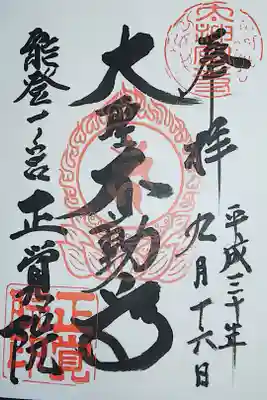 奉拝
平成三十年
九月十六日
大聖不動尊
能登一ノ宮
正覚院
正覚院印